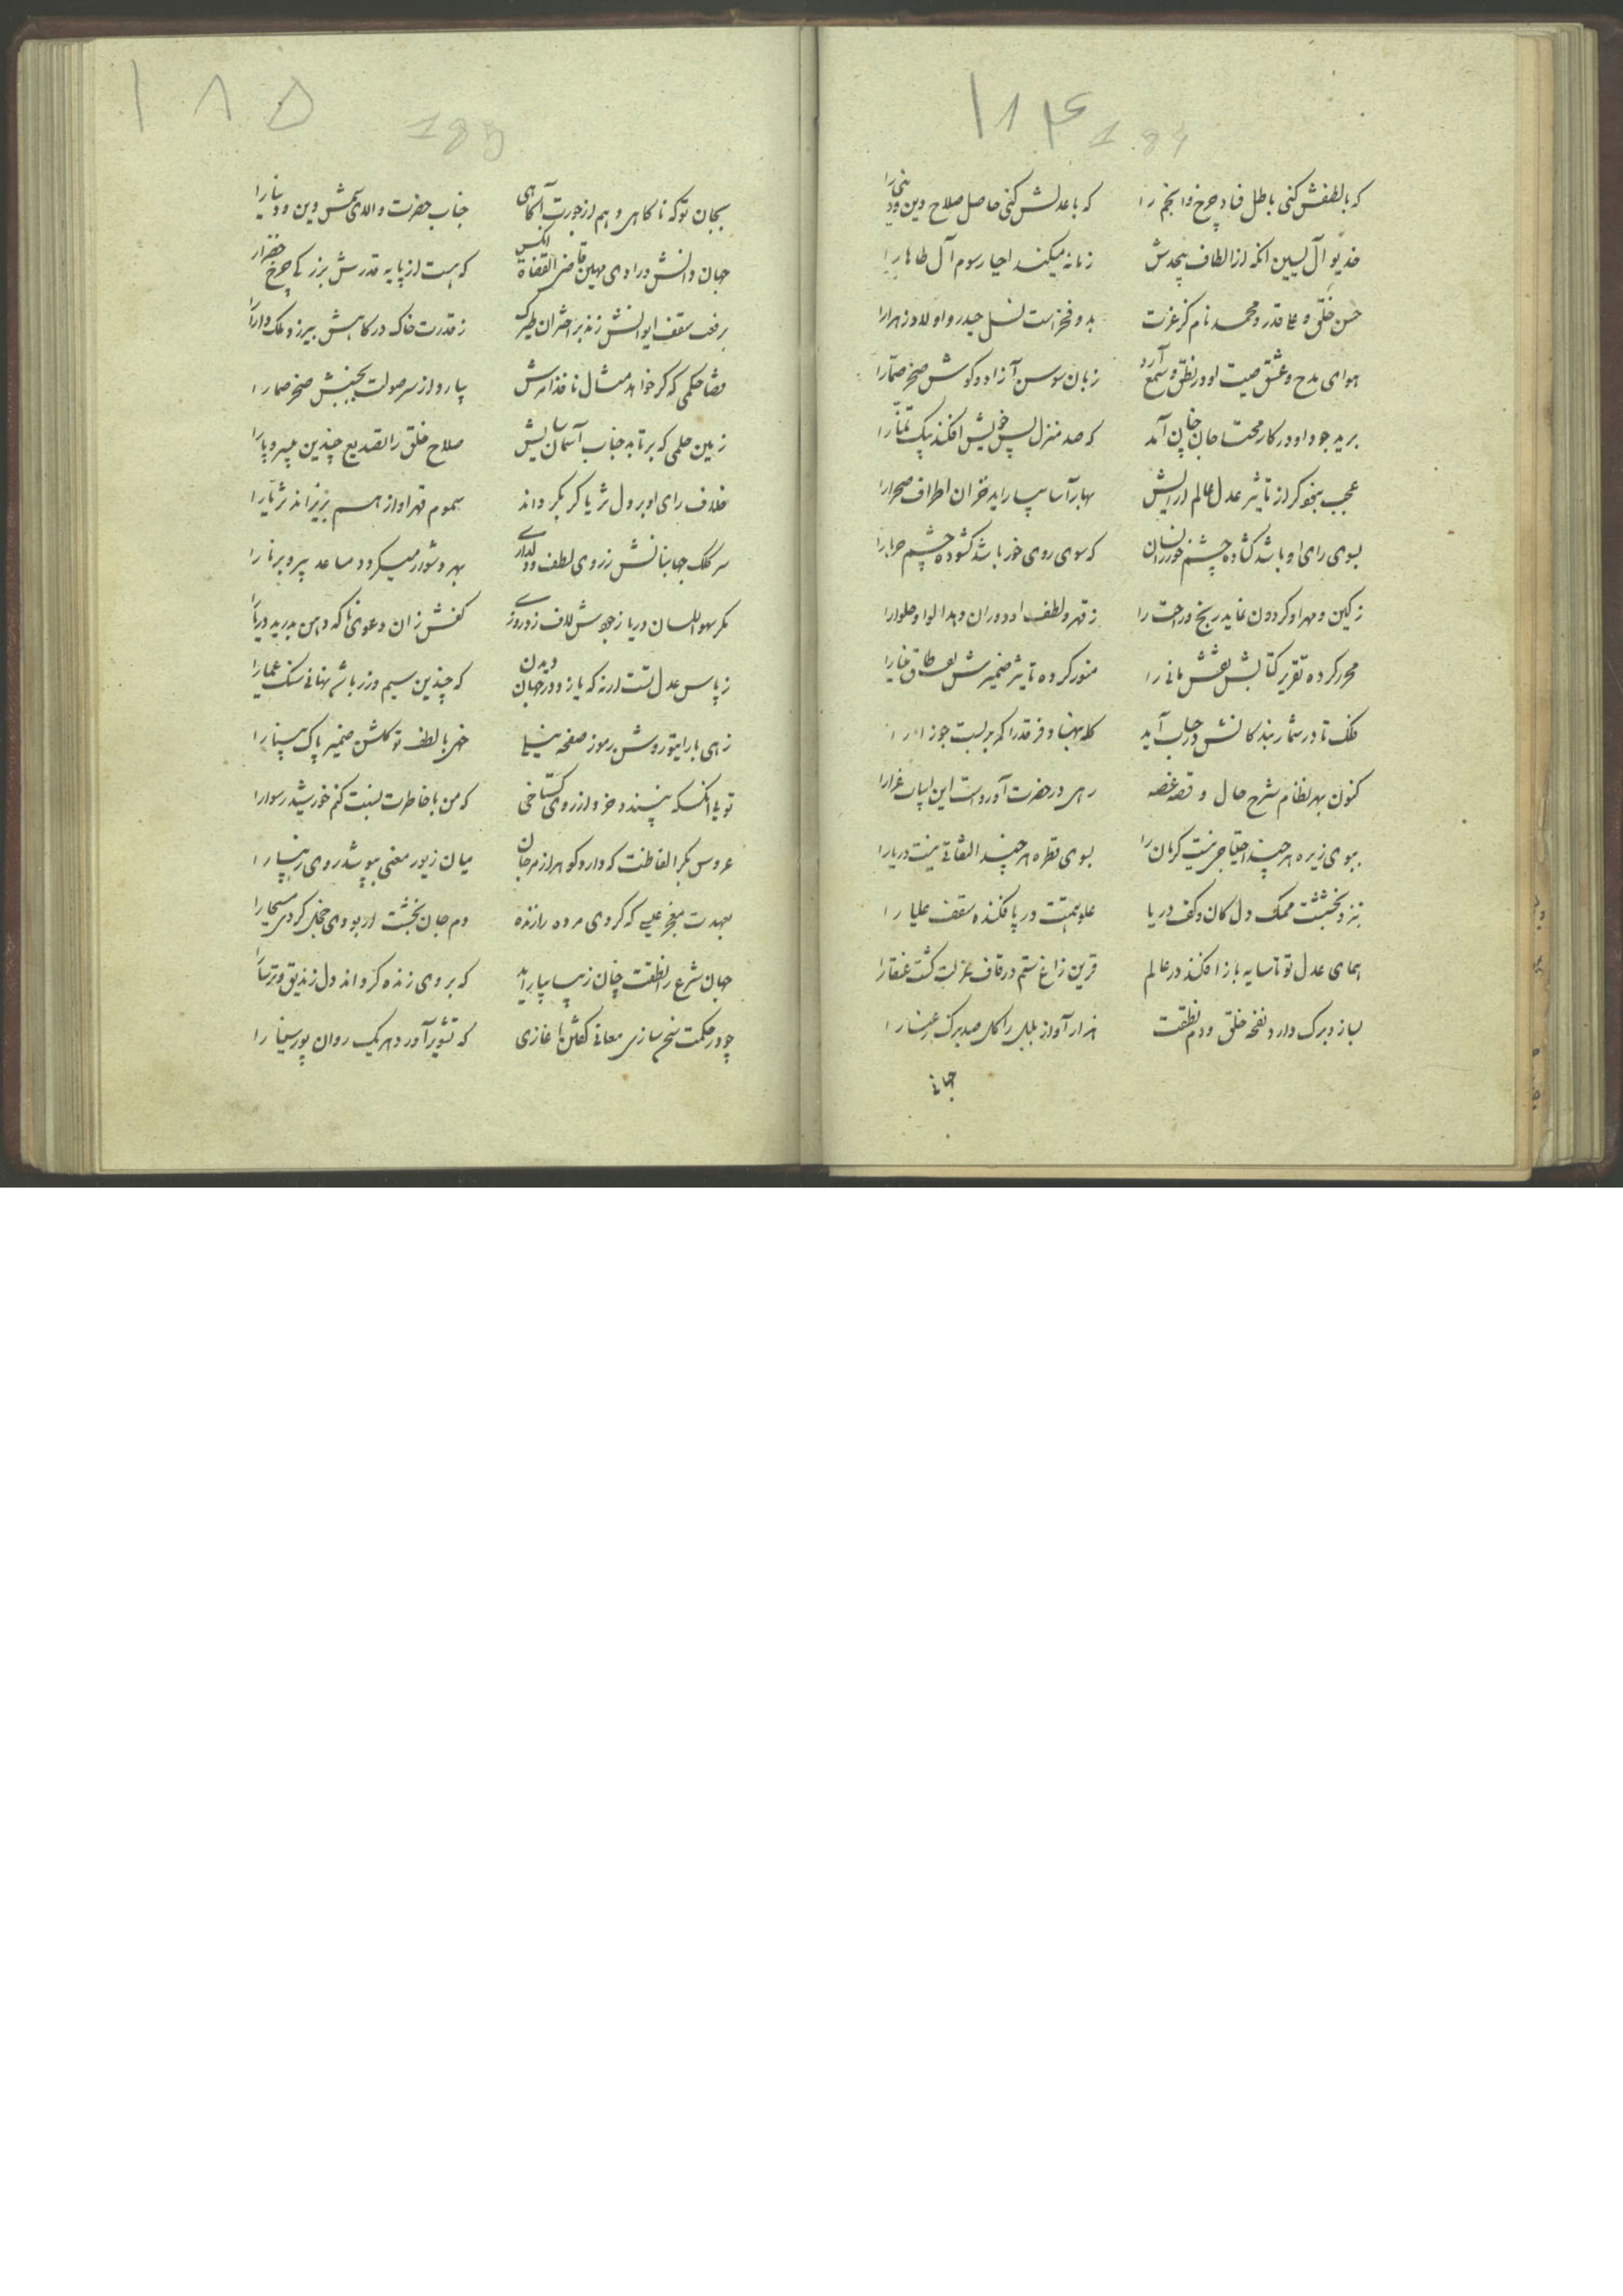 ۱۸۴ 184
که بالطفش کنی باطل فساد چرخ و انجم را که باعدلش کنی حاصل صلاح دین و دنیی را
خدیو آل یسین انکه از الطاف بیحدش زمانه میکند احیا رسوم آل طاها را
حسن خلق و علی قدر و محمد نام کز عزت بدو فخر است نسل حیدر و اولاد زهرا را
هوای مدح و عشق صیت او در نطق و سمع آرد زبان سوسن آزاد و کوش صخره صما را
برید جود او در کار محتاجان چنان آمد که صد منزل پس خویش افکند پیک تمنا را
عجب نبود کر از تاثیر عدل عالم ارایش بهارآسا بیاراید خزان اطراف صحرا را
بسوی رای او باشد کشاده چشم خور زانسان که سوی روی خور باشد کشوده چشم حربا را
ز کین و مهر او کردون نماید رنج و راحت را ز قهر و لطف او دوران دهد الوا و حلوا را
محرر کرده تقریر کتابش نقش مانی را منور کرده تاثیر ضمیرش طاق مینا را
فلک تا در شمار بندکانش در حساب آید کله بنهاد فرقد را کمر بربست جوزا را
کنون بهر نظام شرح حال و قصه غصه رهی در حضرت آوردست این ابیات غرا را
بسوی زیره هر چند احتیاجی نیست کرمان را بسوی قطره هر چند التفاتی نیست دریا را
بنزد بخششت ممسک دل کان و کف دریا علو همتت در پا فکنده سقف علیا را
همای عدل تو تا سایه باز افکند در عالم قرین زاغ ستم در قاف عزلت کشت عنقا را
بساز و برک دارد نفخه خلق و دم نطقت هزار آواز بلبل را کل صد برک رعنا را
جهانی
۱۸۵ 185
بجان تو که ناکاهی و هم از جورت آکاهی جناب حضرت والای شمس دین و دنیا را
جهان دانش و رادی مهین قاضی القضاة انکس که هست از پایه قدرش بزرکی چرخ خضرا را
برفعت سقف ایوانش زند بر اختران طیره ز قدرت خاک درکاهش بیرزد ملک دارا را
قضا حکمی که کر خواهد مثال نافذ امرش بپا رود از سر صولت بجنبش صخر صما را
زمین حلمی که برتابد جناب آسمان سایش صلاح خلق را تصدیع چندین بی سر و پا را
خلاف رای او بر دل ثریا کر بکرداند سموم قهر او از هم بریزاند ثریا را
سر کلک جهانبانش ز روی لطف و دلداری بهر دشوار میکردد مساعد پیر و برنا را
مکر سهو اللسان دریا ز جودش لاف زد روزی کفش زان دعوی ناکه دهن بدرید دریا را
ز پاس عدل تست ارنه که یازد در جهان دیدن که چندین سیم و زر باشد نهانی سنک صما را
زهی با رایت روشن رموز صفحه مینا خهی با لطف تو کلشن ضمیر پاک بینا را
تو با انکسکه نپسندد خرد از روی کستاخی که من با خاطرت نسبت کنم خورشید رسوا را
عروس بکر الفاظت که دارد کوهر از مرجان میان زیور معنی بپوشد روی زیبا را
بعهدت معجز عیسی که کردی مرده را زنده دم جان بخشت ار بودی خجل کردی مسیحا را
جهان شرع را نطقت چنان زیبا بیاراید که بروی زنده کرداند دل زندیق و ترسا را
چو در حکمت سخن سازی معانی کفتن اغازی که تشویر آورد هر یک روان پور سینا را